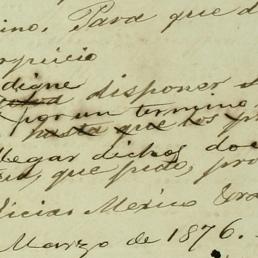 ino. Para que d
rjuicio
digne
disponer s
por un termino
hasta que los
llegar dichos do
que pido, pro
icias Mexico
Marzo de 1876.